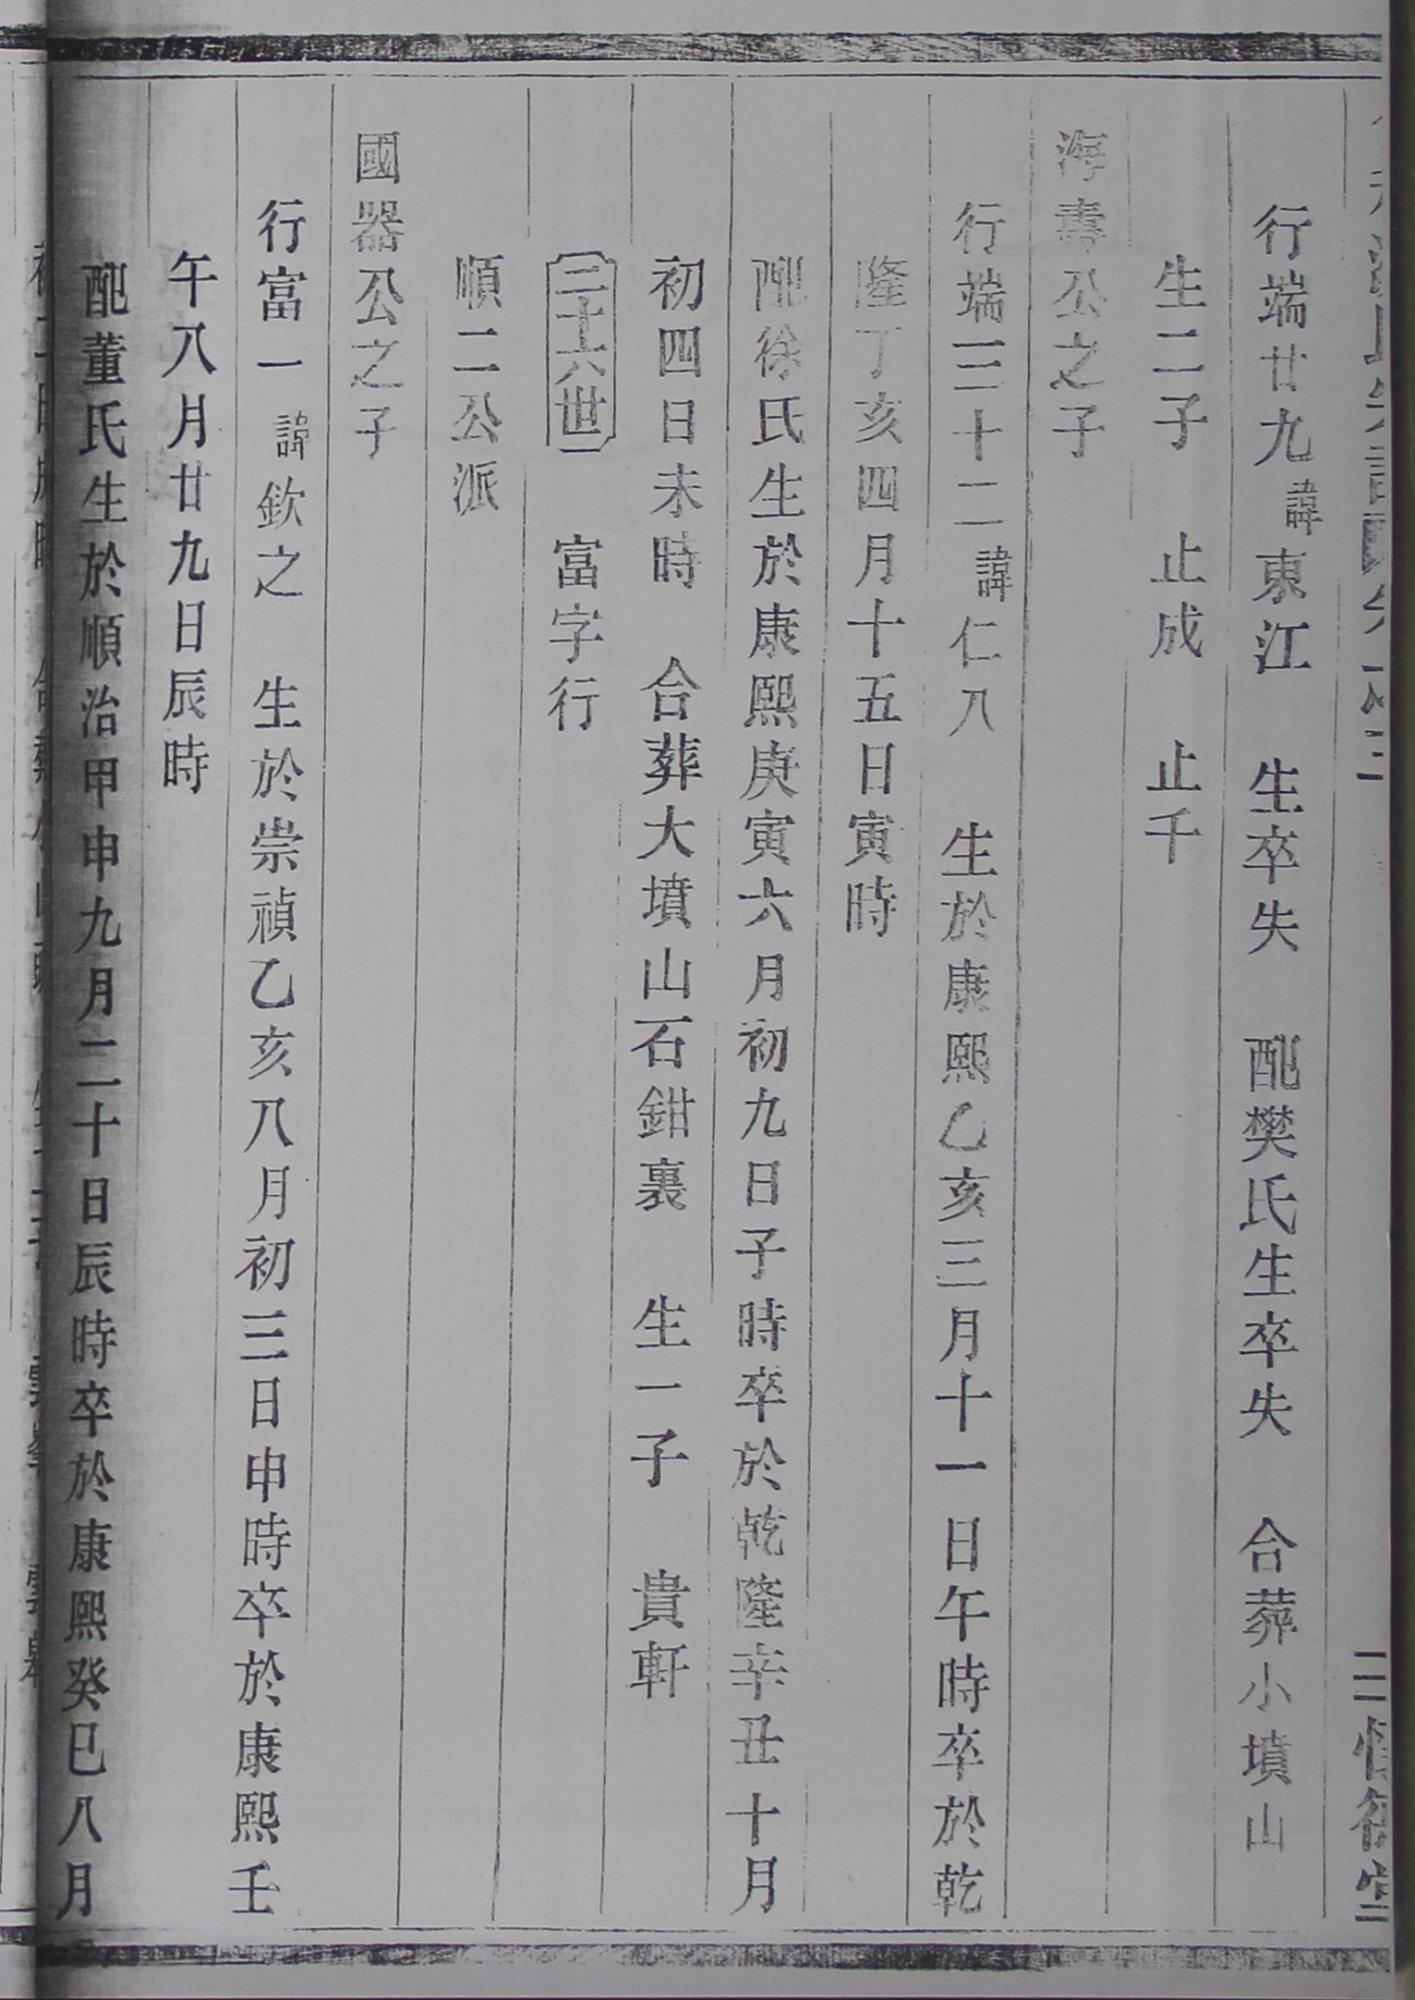 行端廿九諱東江　生卒失　配樊氏生卒失　合葬小墳山
生二子　止成　止千
海壽公之子
行端三十二諱仁八　生於康熙乙亥三月十一日午時卒於乾
隆丁亥四月十五日寅時
配徐氏生於康熙庚寅六月初九日子時卒於乾隆辛丑十月
初四日未時　合葬大墳山石鉗裏　生一子　貴軒
二十六世　富字行
順二公派
國器公之子
行富一諱欽之　生於崇禎乙亥八月初三日申時卒於康熙壬
午八月廿九日辰時
配董氏生於順治甲申九月二十日辰時卒於康熙癸巳八月